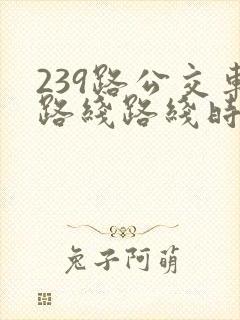 239路公交車
路綫路綫時
兔子阿萌